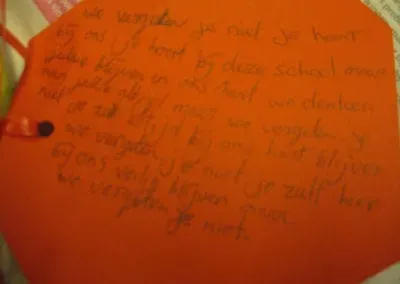 we vergeten je niet je hoort
bij ons je hoort bij deze school maar
blijven en ons hart we denken
aan jullie maar we vergeten je
niet je zult altijd bij ons hart blijven
we vergeten je niet je zult hier
bij ons blijven maar
we vergeten
je niet.